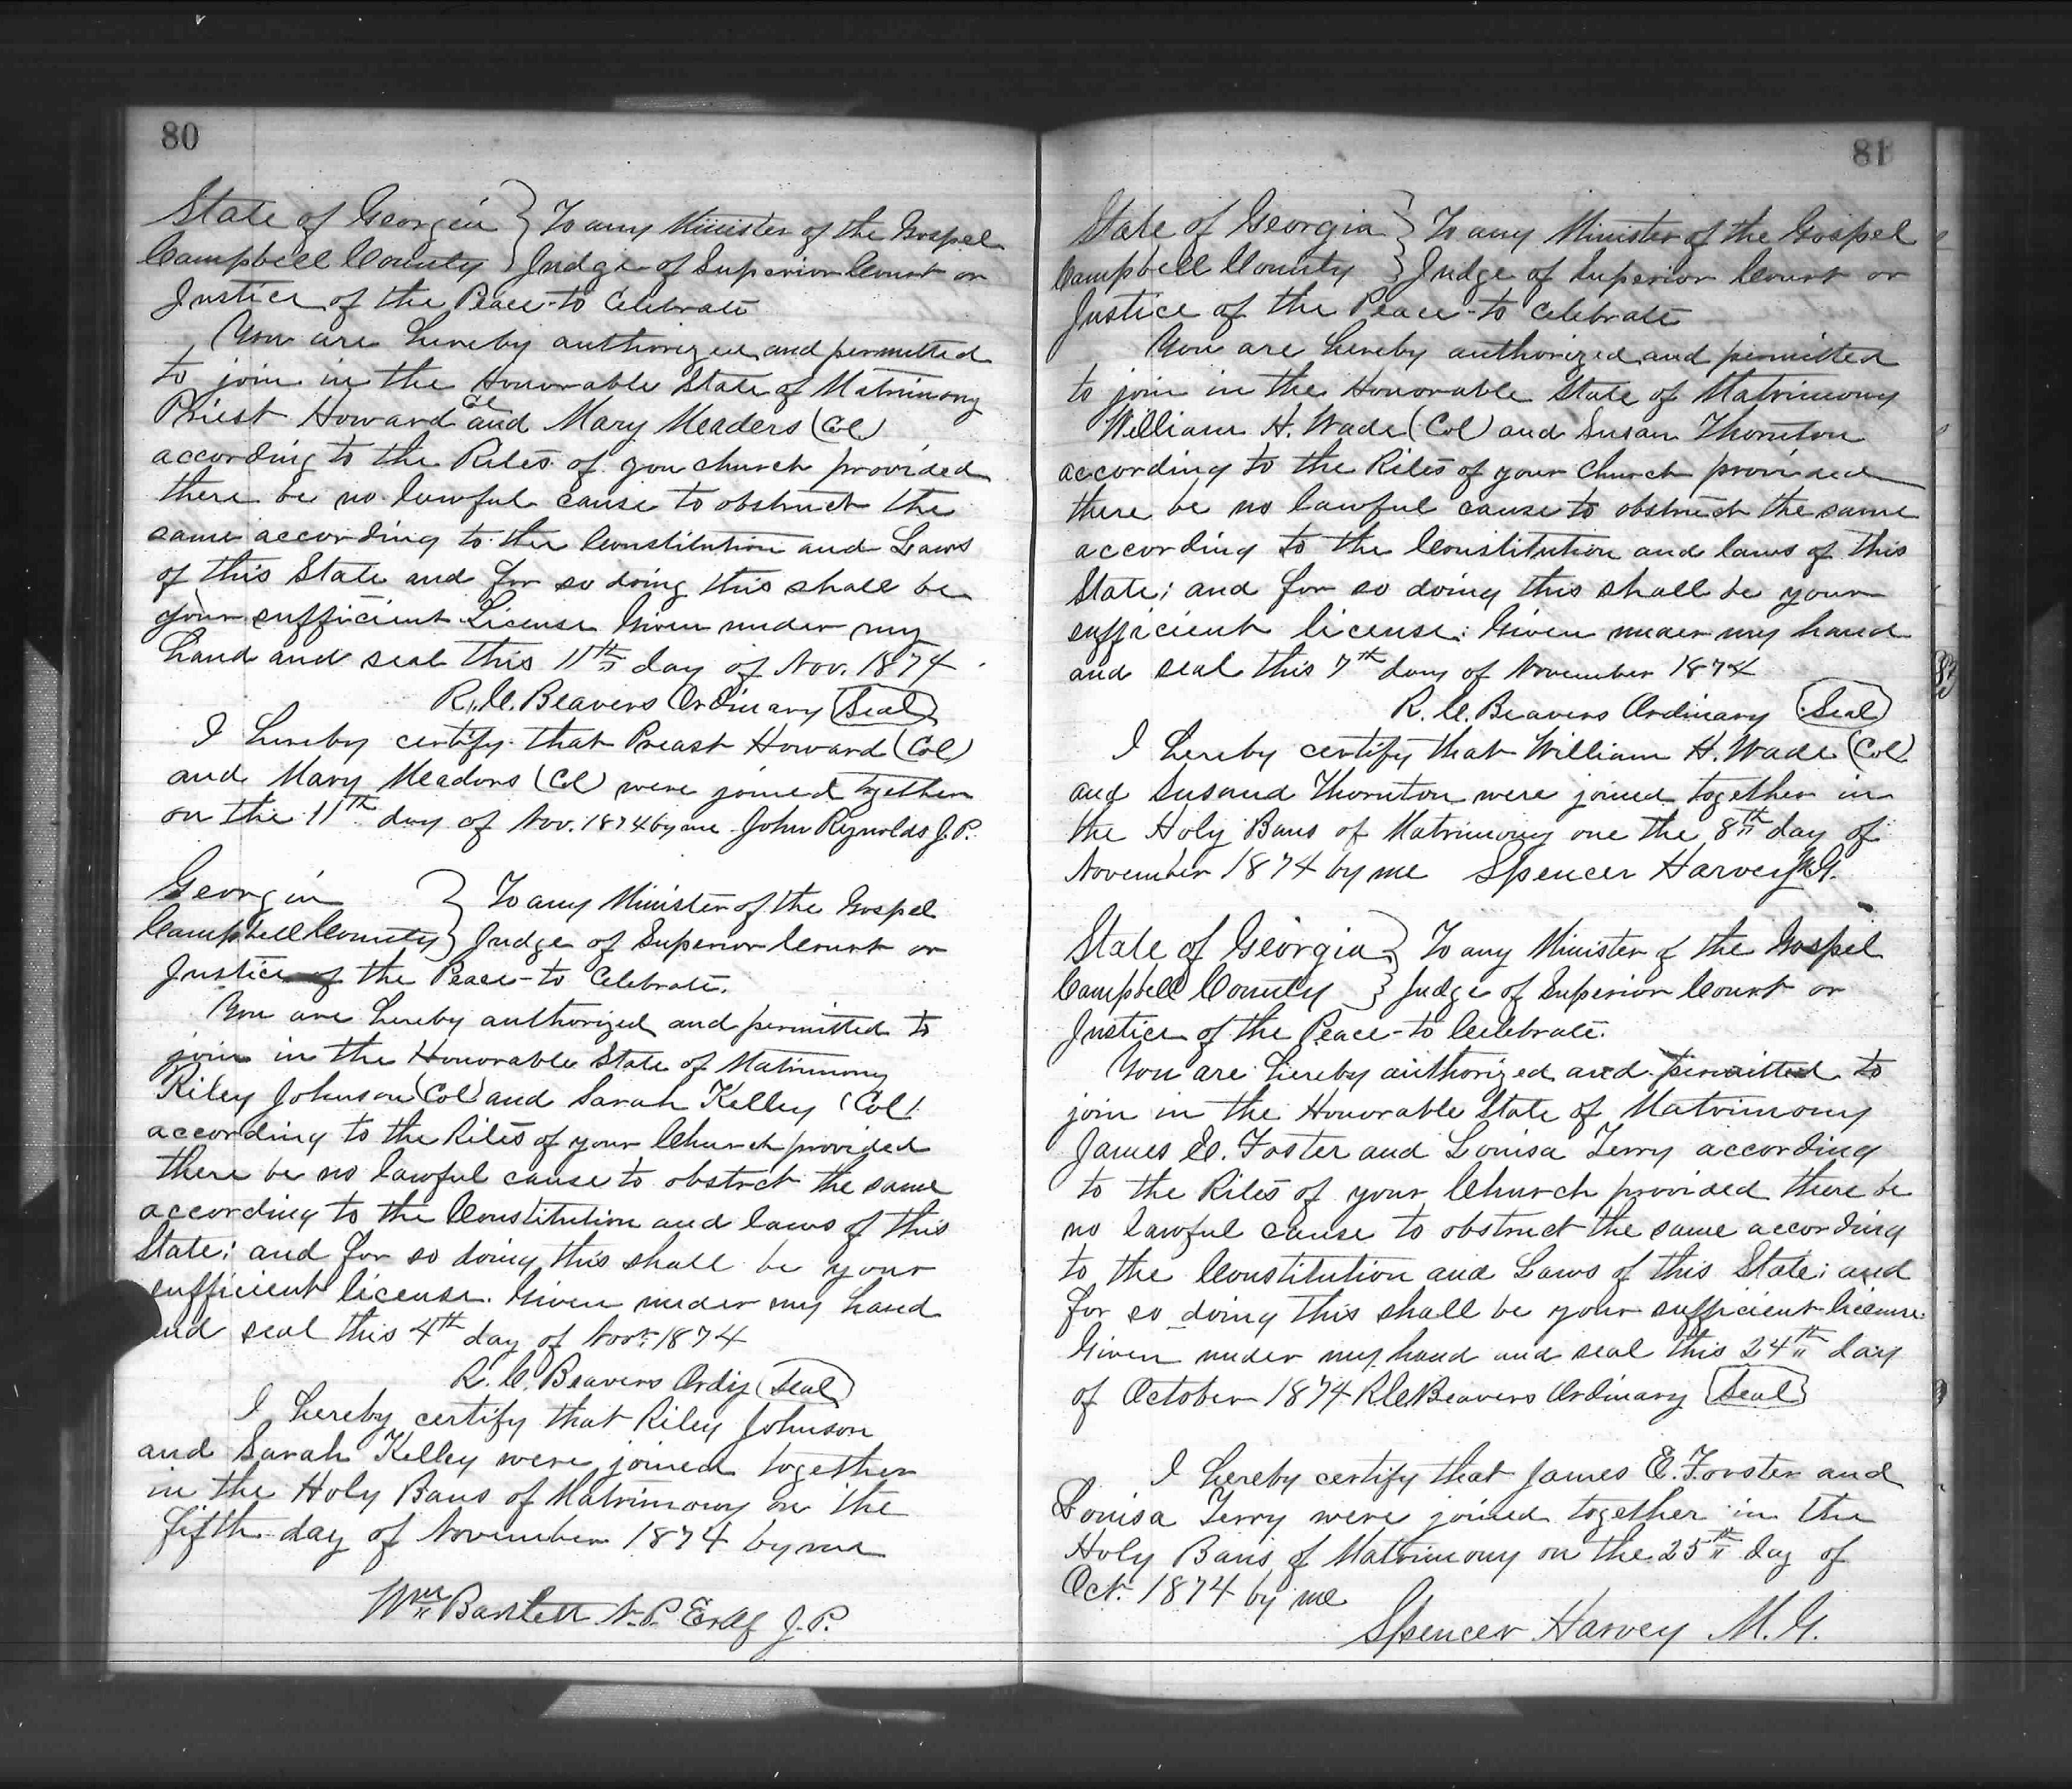 80
State of Georgia } To any Minister of the Gospel
Campbell County } Judge of Superior Court or
Justice of the Peace - to Celebrate
You are hereby authorized and permitted
to join in the Honorable State of Matrimony
Priest Howard Col and Mary Meaders (Col)
according to the Rites of you church provided
there be no lawful cause to obstruct the
same according to the Constitution and Laws
of this State and for so doing this shall be
your sufficient License Given under my
hand and seal this 11th day of Nov. 1874
R. C. Beavers Ordinary (Seal)
I hereby certify that Preast Howard (Col)
and Mary Meadors (Col) were joined together
on the 11th day of Nov. 1874 by me John Reynolds J.P.
Georgia } To any Minister of the Gospel
Campbell County } Judge of Superior Court or
Justice of the Peace - to Celebrate.
You are hereby authorized and permitted to
join in the Honorable State of Matrimony
Riley Johnson (Col) and Sarah Kelley (Col)
according to the Rites of your Church provided
there be no lawful cause to obstrct the same
according to the Constitution and laws of this
State; and for so doing this shall be your
sufficient license. Given under my hand
and seal this 4th day of Novr. 1874
R. C. Beavers Ordiy (Seal)
I hereby certify that Riley Johnson
and Sarah Kelley were joined together
in the Holy Bans of Matrimony on the
fifth day of November 1874 by me
Wm Bartlett N.P. Exoff J.P.
81
State of Georgia } To any Minister of the Gospel
Campbell County } Judge of Superior Court or
Justice of the Peace - to Celebrate
You are hereby authorized and permitted
to join in the Honorable State of Matrimony
William H. Wade (Col) and Susan Thornton
according to the Rites of your Church provided
there be no lawful cause to obstruct the same
according to the Constitution and laws of this
State; and for so doing this shall be your
sufficient license: Given under my hand
and seal this 7th day of November 1874
R. C. Beavers Ordinary (Seal)
I hereby certify that William H. Wade (Col)
and Susand Thornton were joined together in
the Holy Bans of Matrimony one the 8th day of
November 1874 by me Spencer Harvey M.G.
State of Georgia } To any Minister of the Gospel
Campbell County } Judge of Superior Court or
Justice of the Peace - to Celebrate.
You are hereby authorized and permitted to
join in the Honorable State of Matrimony
James E. Foster and Louisa Terry according
to the Rites of your Church provided there be
no lawful cause to obstruct the same according
to the Constitution and Laws of this State; and
for so doing this shall be your sufficient license
Given under my hand and seal this 24th day
of October 1874 R.C. Beavers Ordinary (Seal)
I hereby certify that James E. Forster and
Louisa Terry were joined together in the
Holy Bans of Matrimony on the 25th day of
Oct. 1874 by me
Spencer Harvey M.G.